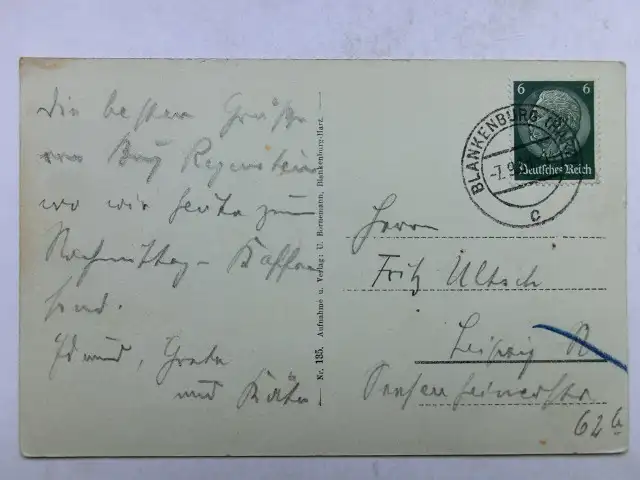 Die besten Grüße
von Burg Regenstein
wo wir heute zum
Nachmittag-Kaffee
sind.
Edmund, Grete
und Käte
Nr. 135. Aufnahme u. Verlag: U. Bornemann, Blankenburg-Harz.
6 6
Deutsches Reich
BLANKENBURG (HARZ)
-7.9
c
Herrn
Fritz Ultsch
Leipzig N
62 b